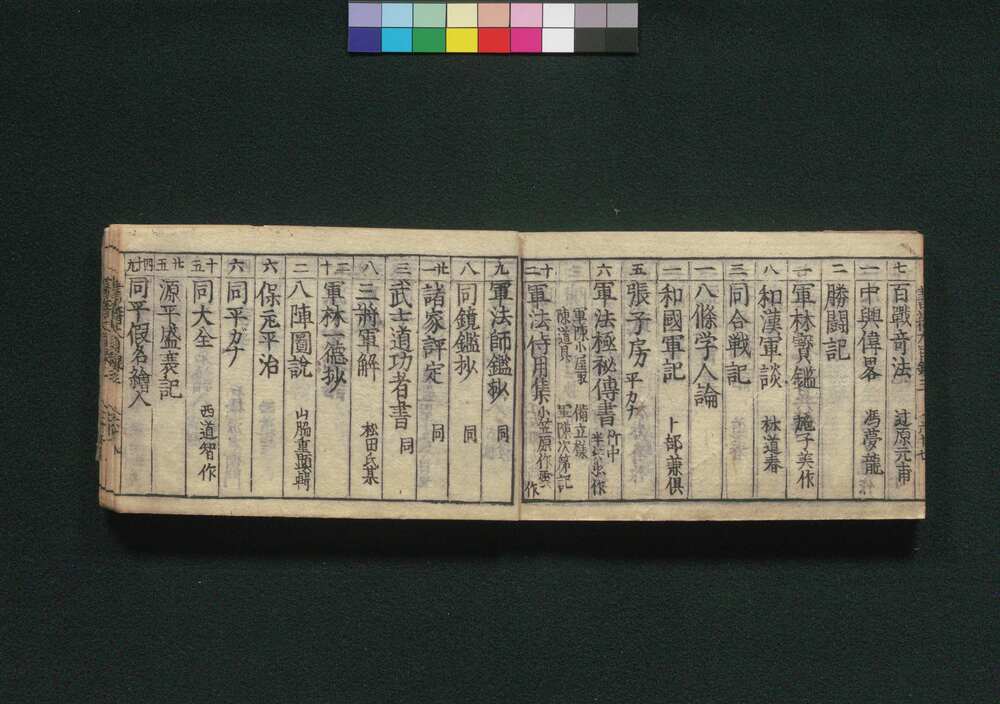 七 百戰奇法 辻原元甫
一 中興偉畧 馮夢龍
二 勝闘記
一 軍林寶鑑 施子美作
八 和漢軍談 林道春
三 同合戦記
一 八條学人論
一 和國軍記 卜部兼倶
五 張子房 平カナ
六 軍法極祕傳書 竹中半兵衛作
軍陣小屋取 備立録
陳道具 軍陳次第記
十二 軍法侍用集 小笠原作雲作
九 軍法師鑑抄 同
八 同鏡鑑抄 同
廿一 諸家評定 同
三 武士道功者書 同
八 三將軍解 松田氏某
軍林一德抄
二 八陣圖說 山脇重顯輯
六 保元平治
六 同平ガナ
十五 同大全 西道智作
廿五 源平盛衰記
四十九 同平假名繪入